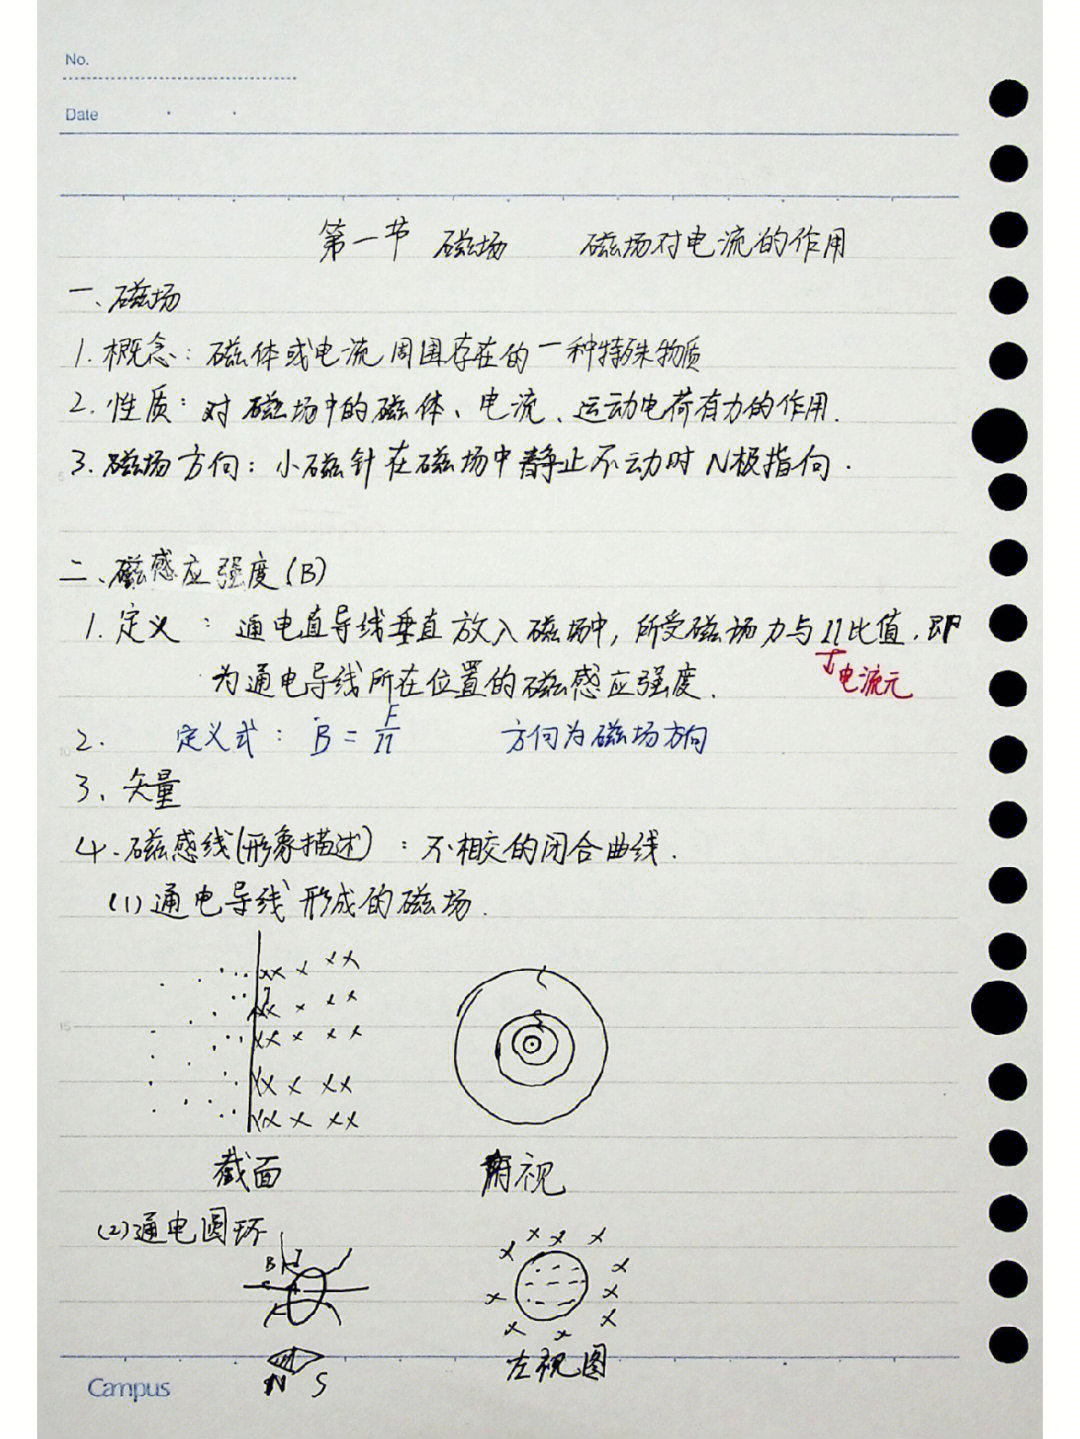 No.
Date
第一节 磁场 磁场对电流的作用
一、磁场
1. 概念：磁体或电流周围存在的一种特殊物质
2. 性质：对磁场中的磁体、电流、运动电荷有力的作用.
3. 磁场方向：小磁针在磁场中静止不动时N极指向.
5
二、磁感应强度(B)
1. 定义：通电直导线垂直放入磁场中，所受磁场力与Il比值，即
为通电导线所在位置的磁感应强度.
电流元
10
2. 定义式：B = F/Il 方向为磁场方向
3、矢量
4. 磁感线(形象描述)：不相交的闭合曲线.
(1) 通电导线形成的磁场.
I
15
截面 俯视
(2) 通电圆环
B I
左视图
N S
Campus